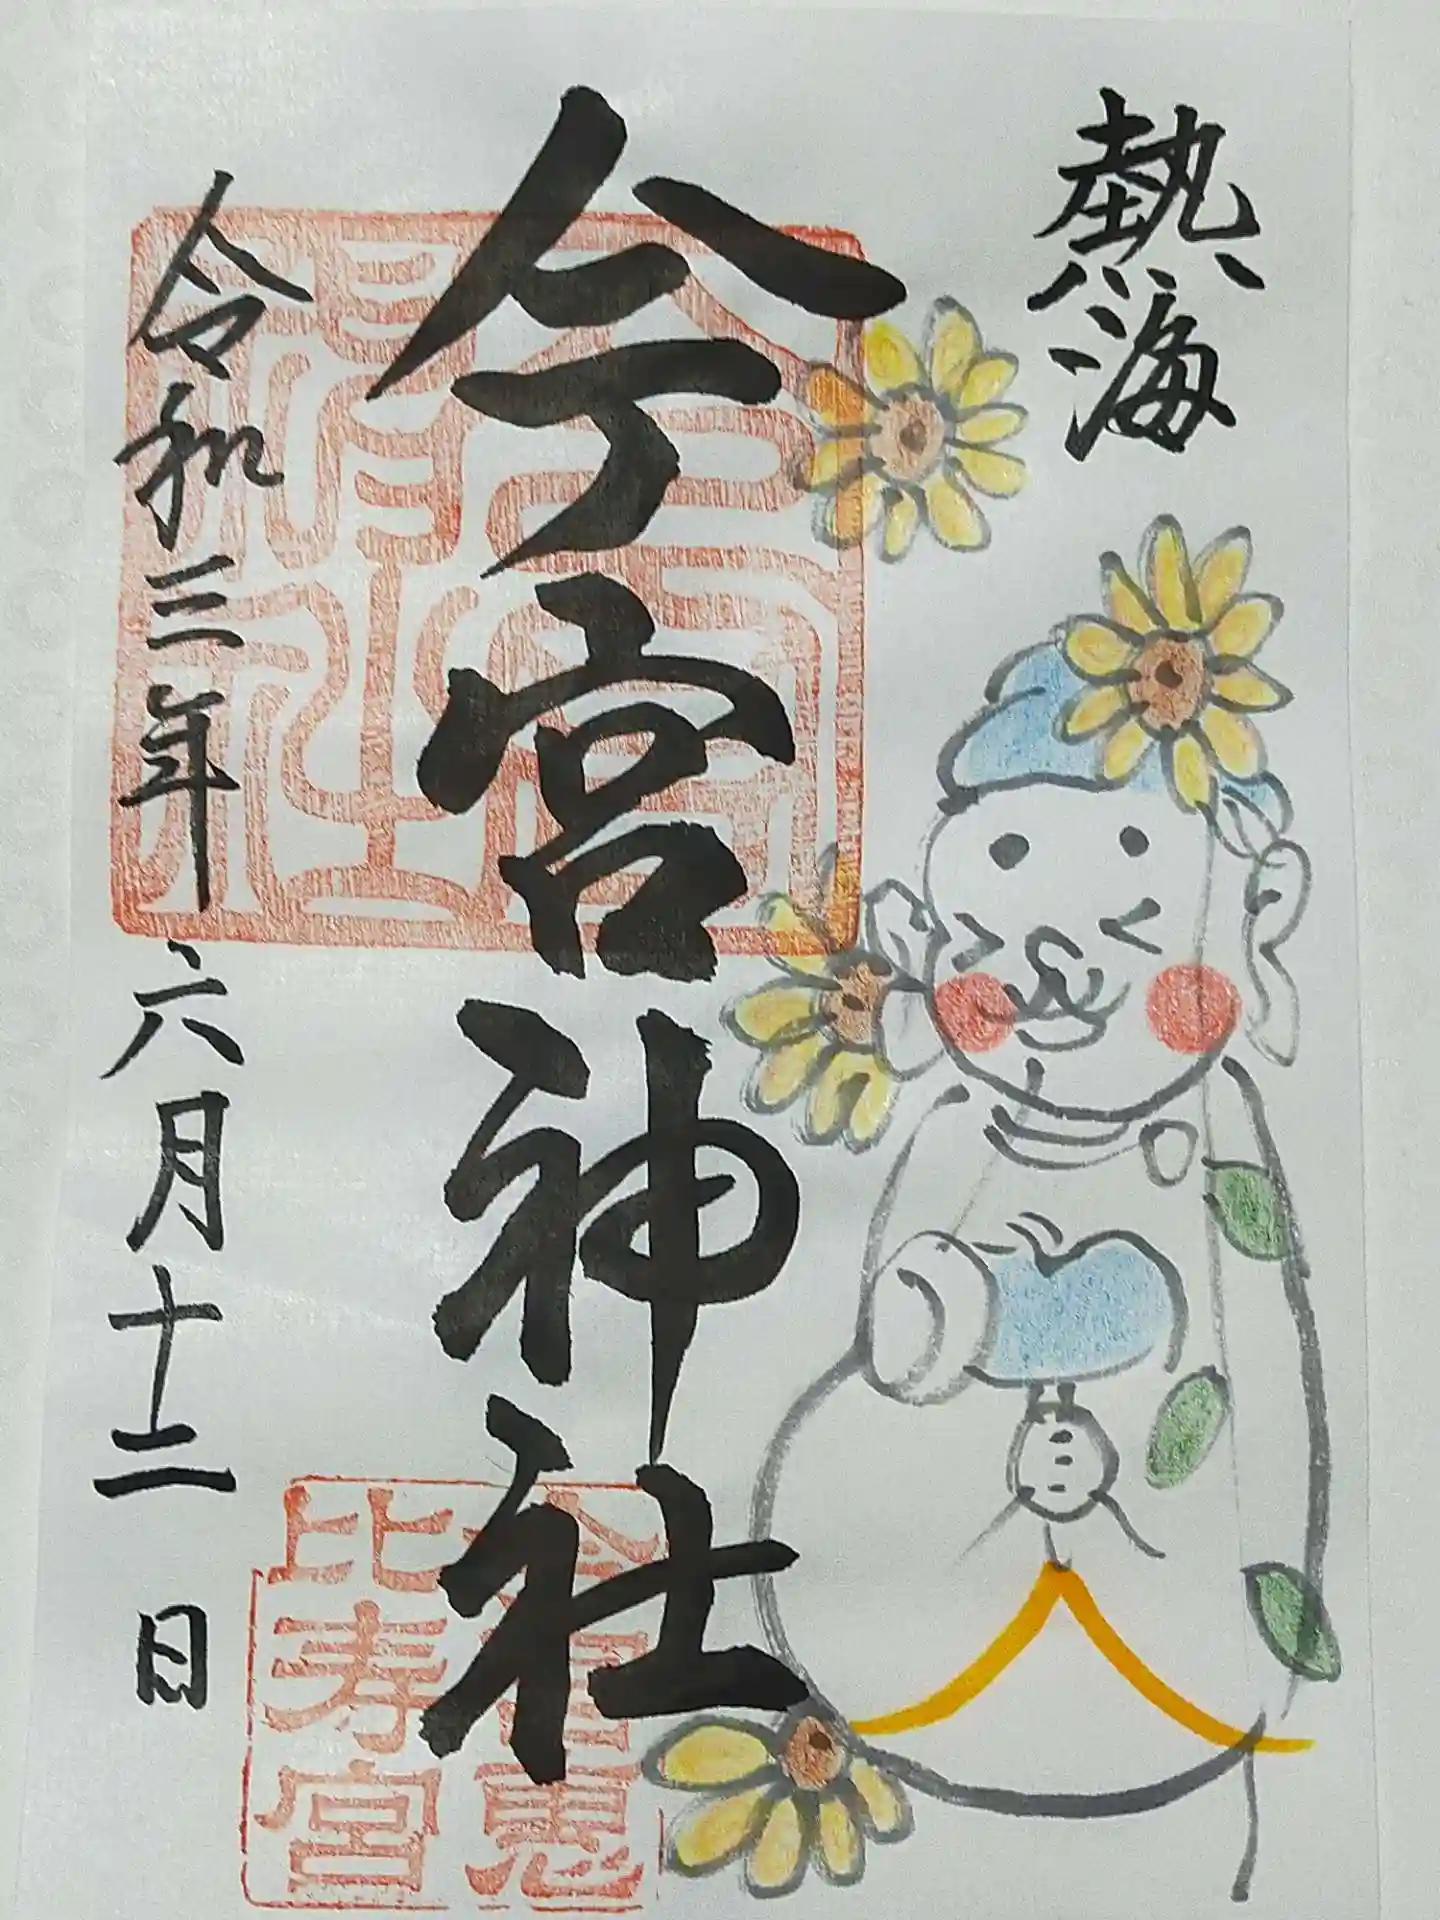 熱海
今宮神社
令和三年六月十二日
今宮神社
今宮恵
比寿宮